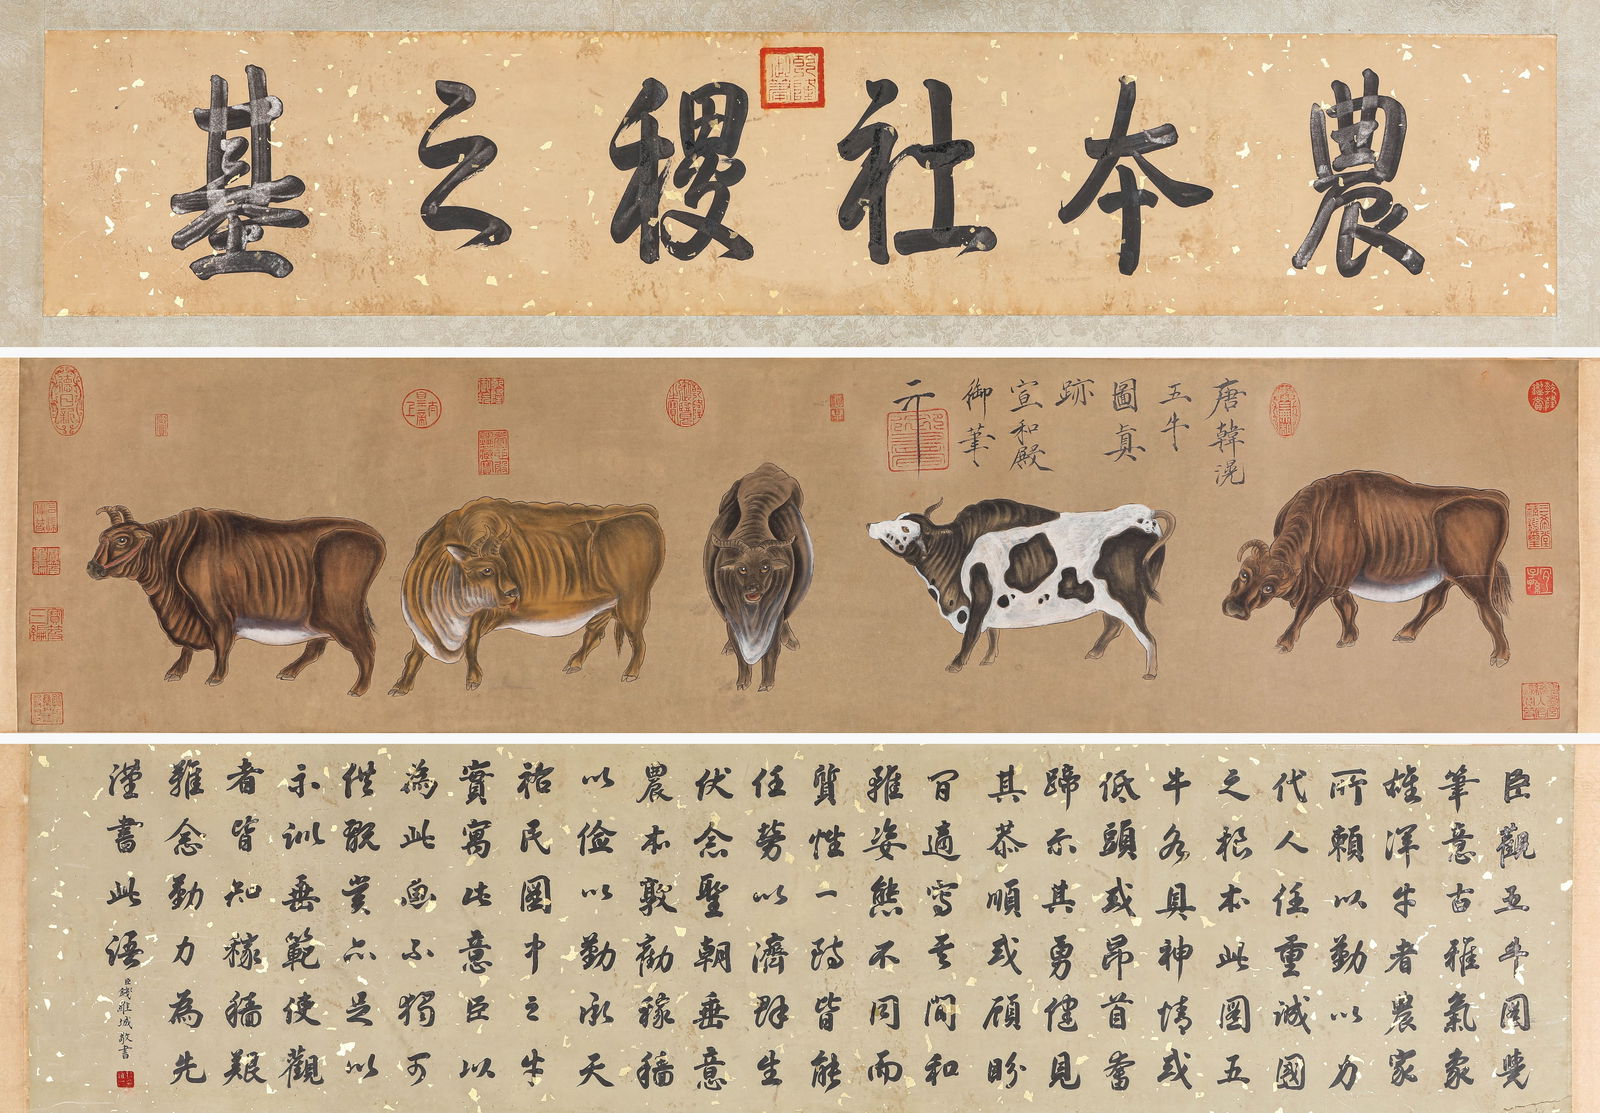 農本社稷之基
乾隆御筆
唐韓滉
五牛
圖真
跡
宣和殿
御筆
臣觀五牛圖覺
筆意古雅氣象
雄渾牛者農家
所賴以勤以力
代人任重誠國
之根本此圖五
牛各具神情或
低頭或昂首奮
蹄示其勇健見
其恭順或顧盼
自適寫其間和
雖姿態不同而
質性一致皆能
任勞以濟群生
伏念聖朝垂意
農本敦勸稼穡
以儉以勤承天
祐民圖中之牛
實寓此意臣以
為此画不獨可
供翫賞亦足以
示訓垂範使觀
者皆知稼穡艱
難念勤力為先
謹書此語
臣錢維城敬書